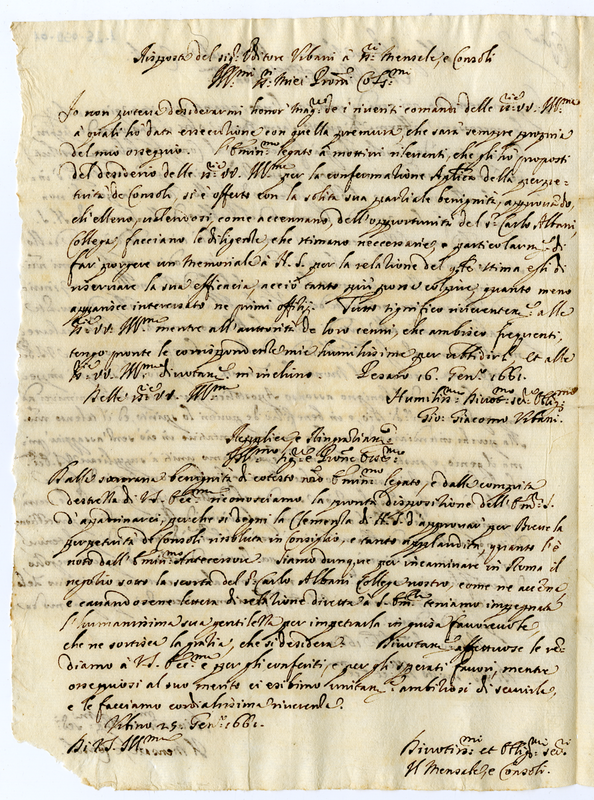 Risposta del sig.r Uditore Urbani à n.ri Mensale, e Consoli
Ill.mi SS.ri miei Proni Col.mi
Io non poteva desiderarmi honor mag.re de i riveriti comandi delle SS.rie VV. Ill.me
à quali hò data essecutione con quella premura, che sarà sempre propria
del mio ossequio. L'Em.mo legato à mottivi rilevanti, che gli hò proposti
del desiderio delle SS.rie VV. Ill.me per la confermatione Aplica della perpe-
tuità de Consoli, si è offerto con la solita sua partiale benignità, approvando,
ch'elleno, valendosi, come accennano, dell'opportunità del S.r Carlo Albani,
Collega, facciano le diligenze, che stimano neccessarie, e particolarm.te di
far porgere un Memoriale à N. S. per la relatione del q.le stima egli di
riservare la sua efficacia, acciò tanto più possa colpire, quanto meno
apparisce interessato ne primi offitij. Tutto significo riverentem.te alle
SS.rie VV. Ill.me mentre all'autorità de loro cenni, che ambisco frequenti,
tengo pronte le corrispondenze mie humilissime per ubbidirle, et alle
SS.rie VV. Ill.me divotam.te m'inchino. Pesaro 16. Gen.ro 1661.
Delle SS.rie VV. Ill.me
Humiliss.mo Divot.mo Ser.re Obblig.mo
Gio: Giacomo Urbani.
Replica, e Ringratiam.to
Ill.mo Sig.re e Prone Oss.mo
Dalla sovrana benignità di cotesto nro Em.mo legato, e dalla compita
destrezza di V.S. Ecc.ma riconosciamo la pronta dispositione dell'Em.za S.
d'apadrinarci, perche si degni la Clemenza di N.S. d'approvar per Breve la
perpetuità de Consoli risoluta in Consiglio, e tanto applaudita, quanto l'è
noto dall'Em.mo Antecessore. Siamo dunque per incaminare in Roma il
negotio sotto la scorta del S.r Carlo Albani Collega nostro, come ne accenna,
e cavandosene lettera di relatione diretta à S. Em.za teniamo impegnata
l'humanissima sua gentilezza per impetrarla in guisa favorevole
che ne sortisca la gratia, che si desidera. Divotam.te affettuose le ren-
diamo à V.S. Ecc.ma e per gli conferiti, e per gli sperati favori, mentre
ossequiosi al suo merito ci esibimo unitam.te ambitiosi di servirla,
e le facciamo cordialissima riverenza.
Urbino 25. Gen.ro 1661.
Di V.S. Ill.ma
Divotiss.mi et Obblig.mi Ser.ri
Il Mensale, e Consoli.